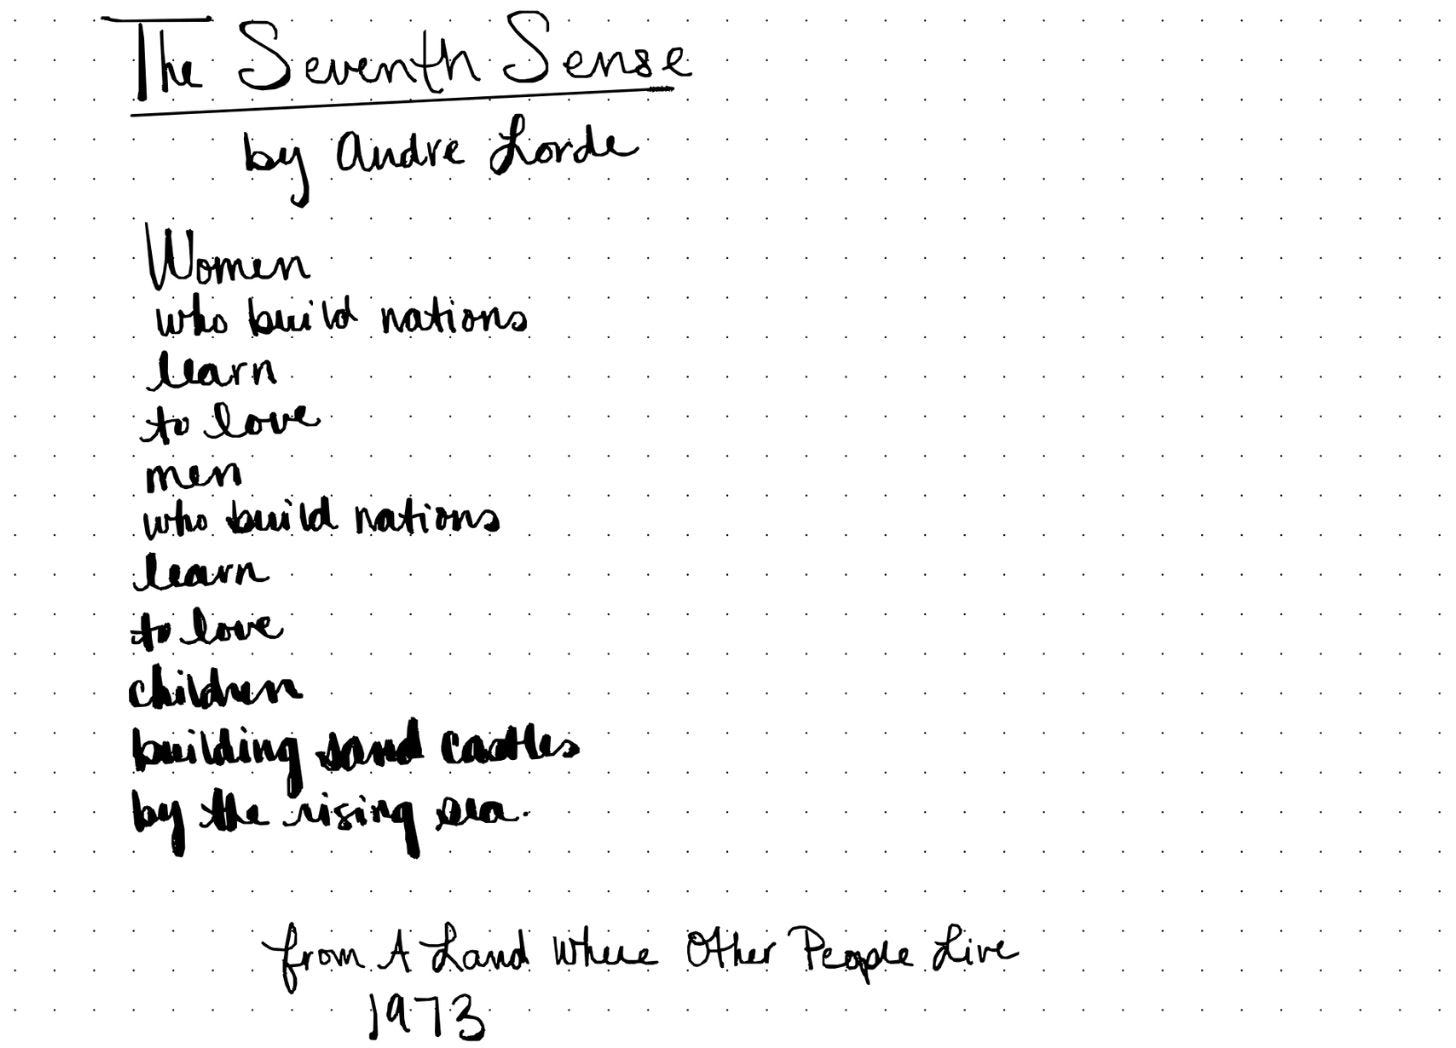 The Seventh Sense
by Andre Lorde
Women
who build nations
learn
to love
men
who build nations
learn
to love
children
building sand castles
by the rising sea.
from A Land Where Other People Live
1973